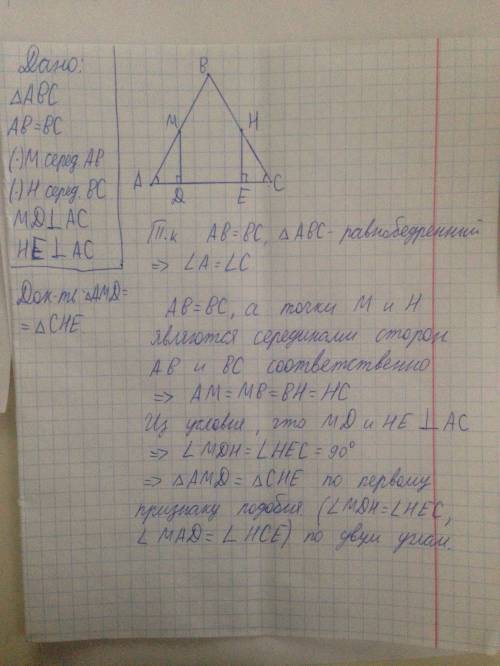 Дано:
△ABC
AB=BC
(·)M серед AB
(·) H серед. BC
MD⊥AC
HE⊥AC
Док-ть △AMD=
=△CHE.
B
M
H
A
D
E
C
Т.к AB=BC, △ABC- равнобедренний
=> ∠A=∠C
AB=BC, а точки M и H
являются серединами сторон
AB и BC соответственно
=> AM=MB=BH=HC
Из условия, что MD и HE⊥AC
=> ∠MDH=∠HEC=90°
=> △AMD=△CHE по первому
признаку подобия (∠MDH=∠HEC,
∠MAD=∠HCE) по двум углам.